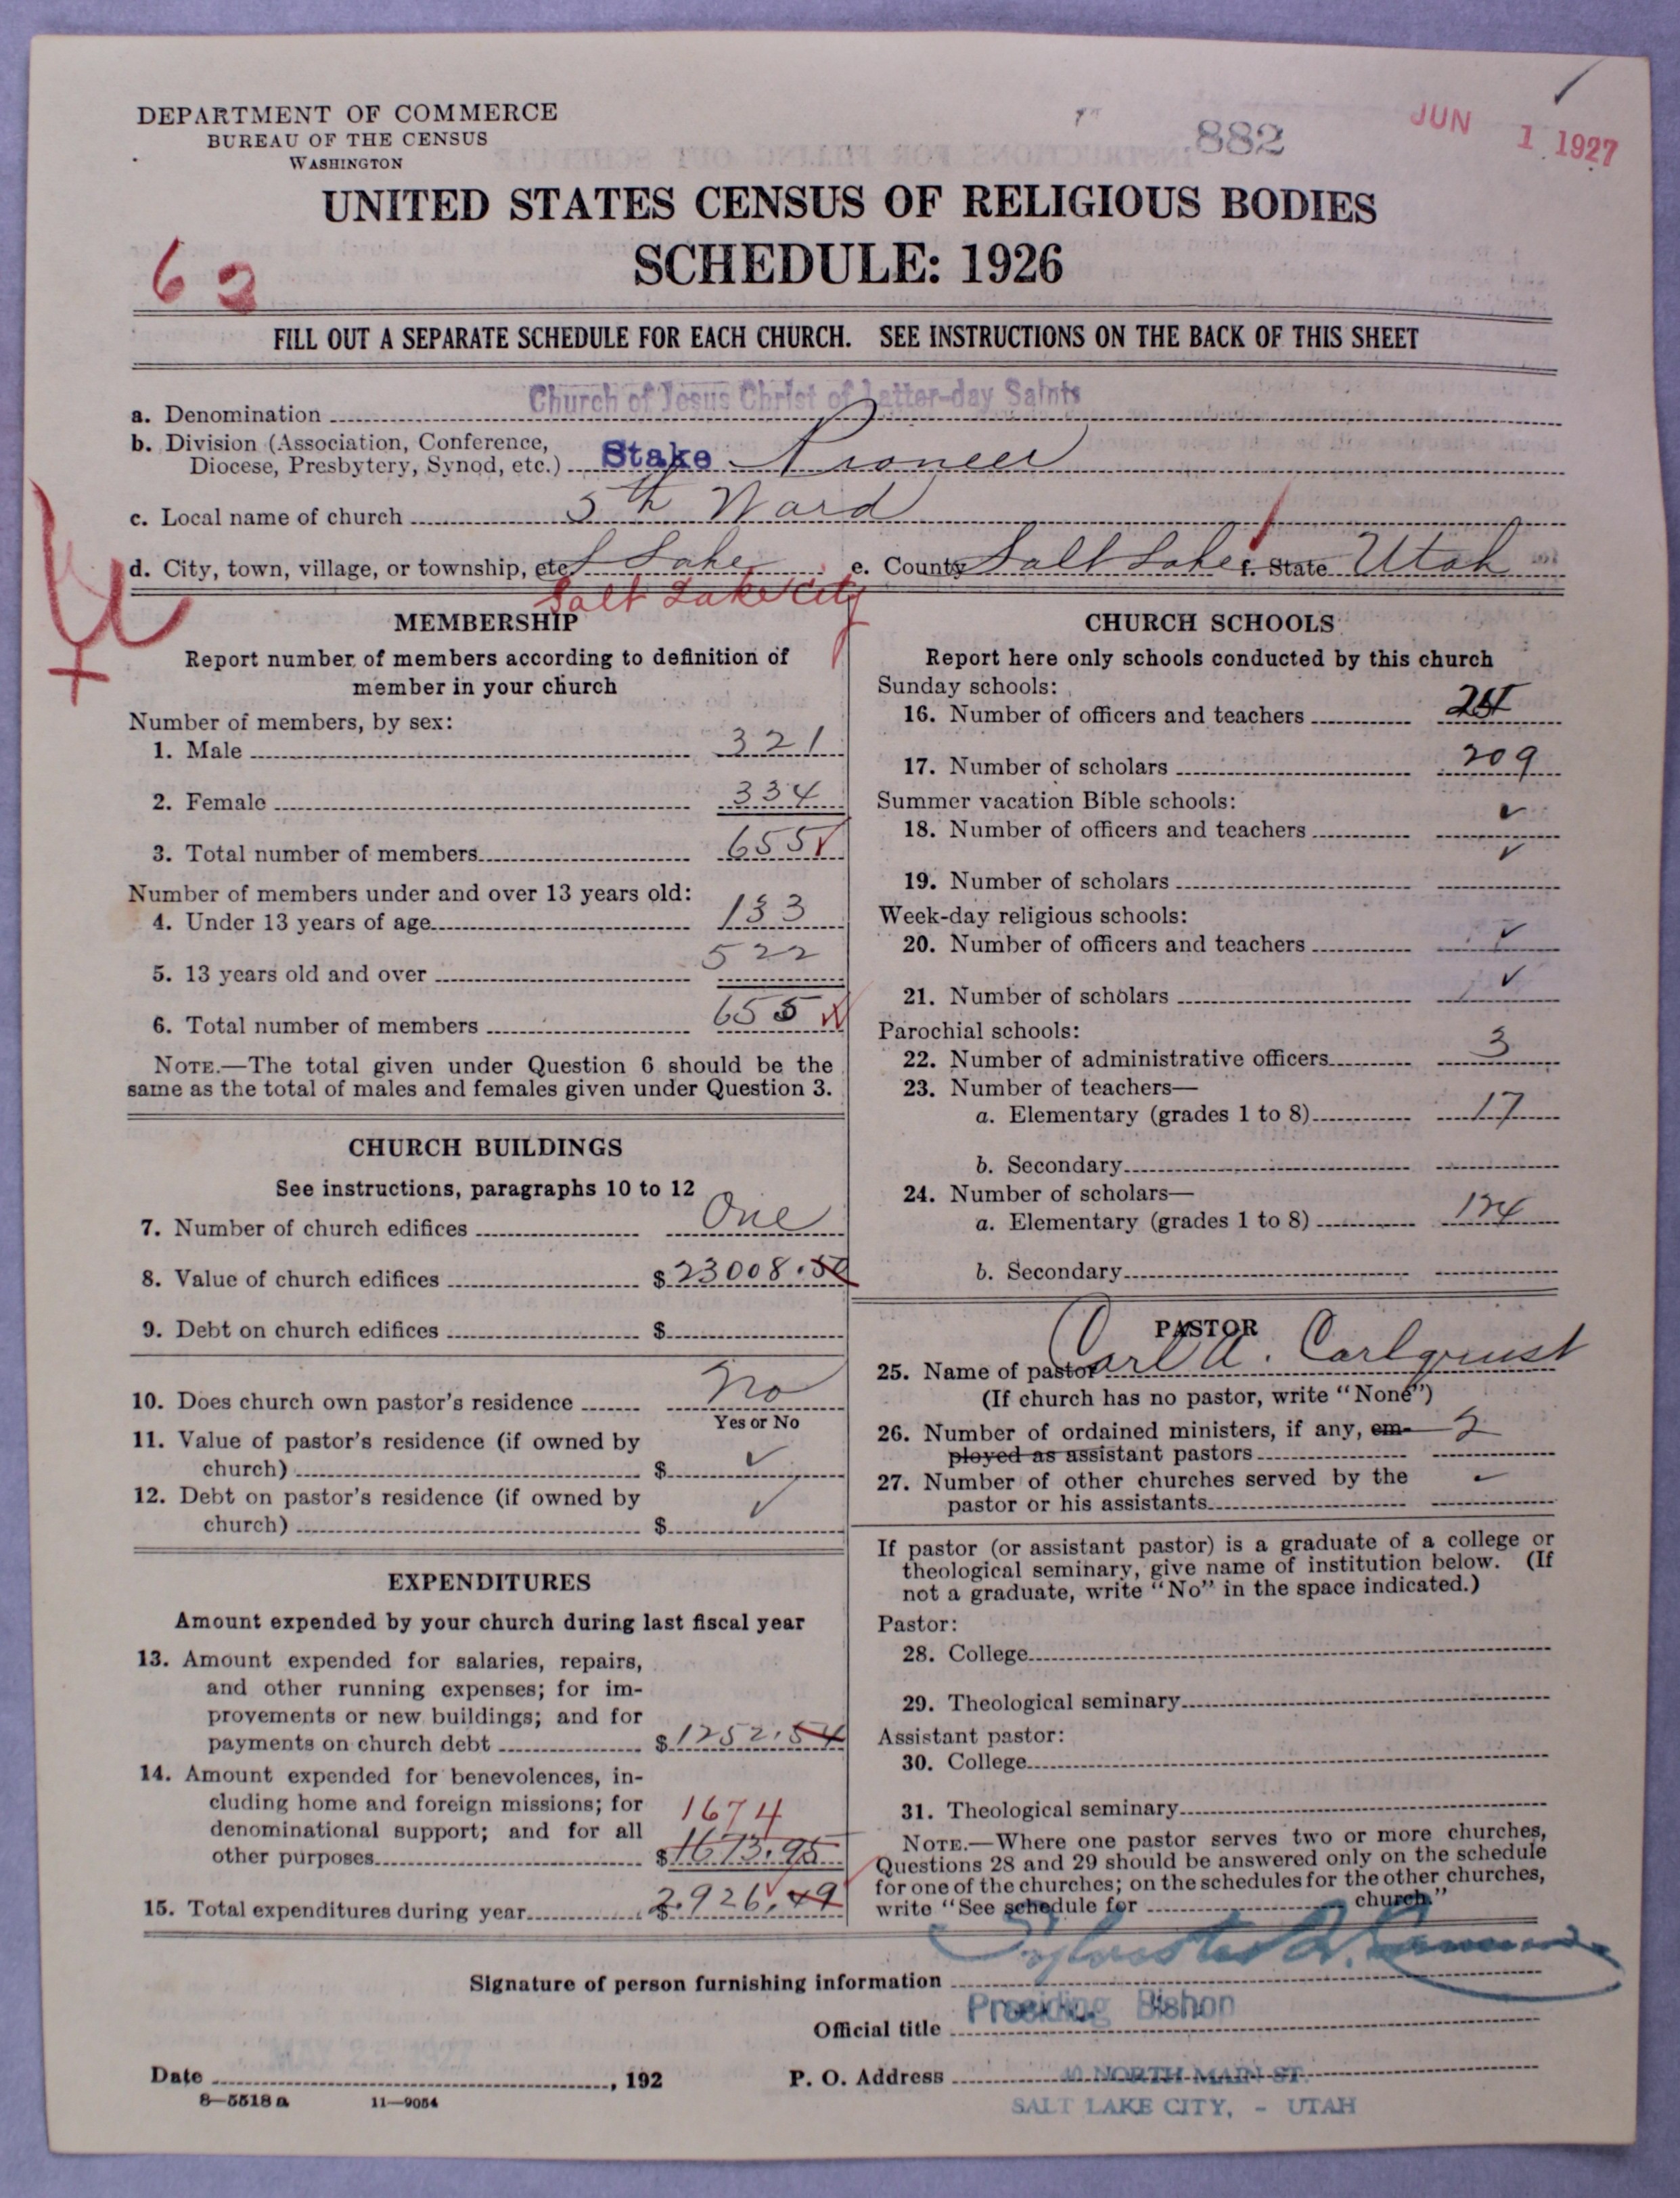 DEPARTMENT OF COMMERCE
BUREAU OF THE CENSUS
WASHINGTON
882
JUN 1 1927
UNITED STATES CENSUS OF RELIGIOUS BODIES
SCHEDULE: 1926
62
FILL OUT A SEPARATE SCHEDULE FOR EACH CHURCH. SEE INSTRUCTIONS ON THE BACK OF THIS SHEET
a. Denomination Church of Jesus Christ of Latter-day Saints
b. Division (Association, Conference,
Diocese, Presbytery, Synod, etc.) Stake Pioneer
c. Local name of church 5th Ward
d. City, town, village, or township, etc. S Lake e. County Salt Lake f. State Utah
Salt Lake City
MEMBERSHIP
Report number of members according to definition of
member in your church
Number of members, by sex:
1. Male 321
2. Female 334
3. Total number of members 655
Number of members under and over 13 years old:
4. Under 13 years of age 133
5. 13 years old and over 522
6. Total number of members 655
NOTE.—The total given under Question 6 should be the
same as the total of males and females given under Question 3.
CHURCH BUILDINGS
See instructions, paragraphs 10 to 12
7. Number of church edifices One
8. Value of church edifices $ 23008.50
9. Debt on church edifices $
10. Does church own pastor's residence No
Yes or No
11. Value of pastor's residence (if owned by
church) $ ✓
12. Debt on pastor's residence (if owned by
church) $ ✓
EXPENDITURES
Amount expended by your church during last fiscal year
13. Amount expended for salaries, repairs,
and other running expenses; for im-
provements or new buildings; and for
payments on church debt $ 1252.54
14. Amount expended for benevolences, in-
cluding home and foreign missions; for
denominational support; and for all
1674
other purposes $ 1673.95
15. Total expenditures during year $ 2926.49
CHURCH SCHOOLS
Report here only schools conducted by this church
Sunday schools:
16. Number of officers and teachers
17. Number of scholars 209
Summer vacation Bible schools:
18. Number of officers and teachers ✓
19. Number of scholars ✓
Week-day religious schools:
20. Number of officers and teachers ✓
21. Number of scholars ✓
Parochial schools:
22. Number of administrative officers 3
23. Number of teachers—
a. Elementary (grades 1 to 8) 17
b. Secondary
24. Number of scholars—
a. Elementary (grades 1 to 8) 124
b. Secondary
PASTOR
25. Name of pastor Carl A. Carlquist
(If church has no pastor, write "None")
26. Number of ordained ministers, if any, em-
ployed as assistant pastors 2
27. Number of other churches served by the
pastor or his assistants ✓
If pastor (or assistant pastor) is a graduate of a college or
theological seminary, give name of institution below. (If
not a graduate, write "No" in the space indicated.)
Pastor:
28. College
29. Theological seminary
Assistant pastor:
30. College
31. Theological seminary
NOTE.—Where one pastor serves two or more churches,
Questions 28 and 29 should be answered only on the schedule
for one of the churches; on the schedules for the other churches,
write "See schedule for church"
Signature of person furnishing information Sylvester Q. Cannon
Official title Presiding Bishop
Date , 192
P. O. Address 40 NORTH MAIN ST.
SALT LAKE CITY, - UTAH
8—5518 a 11—9054